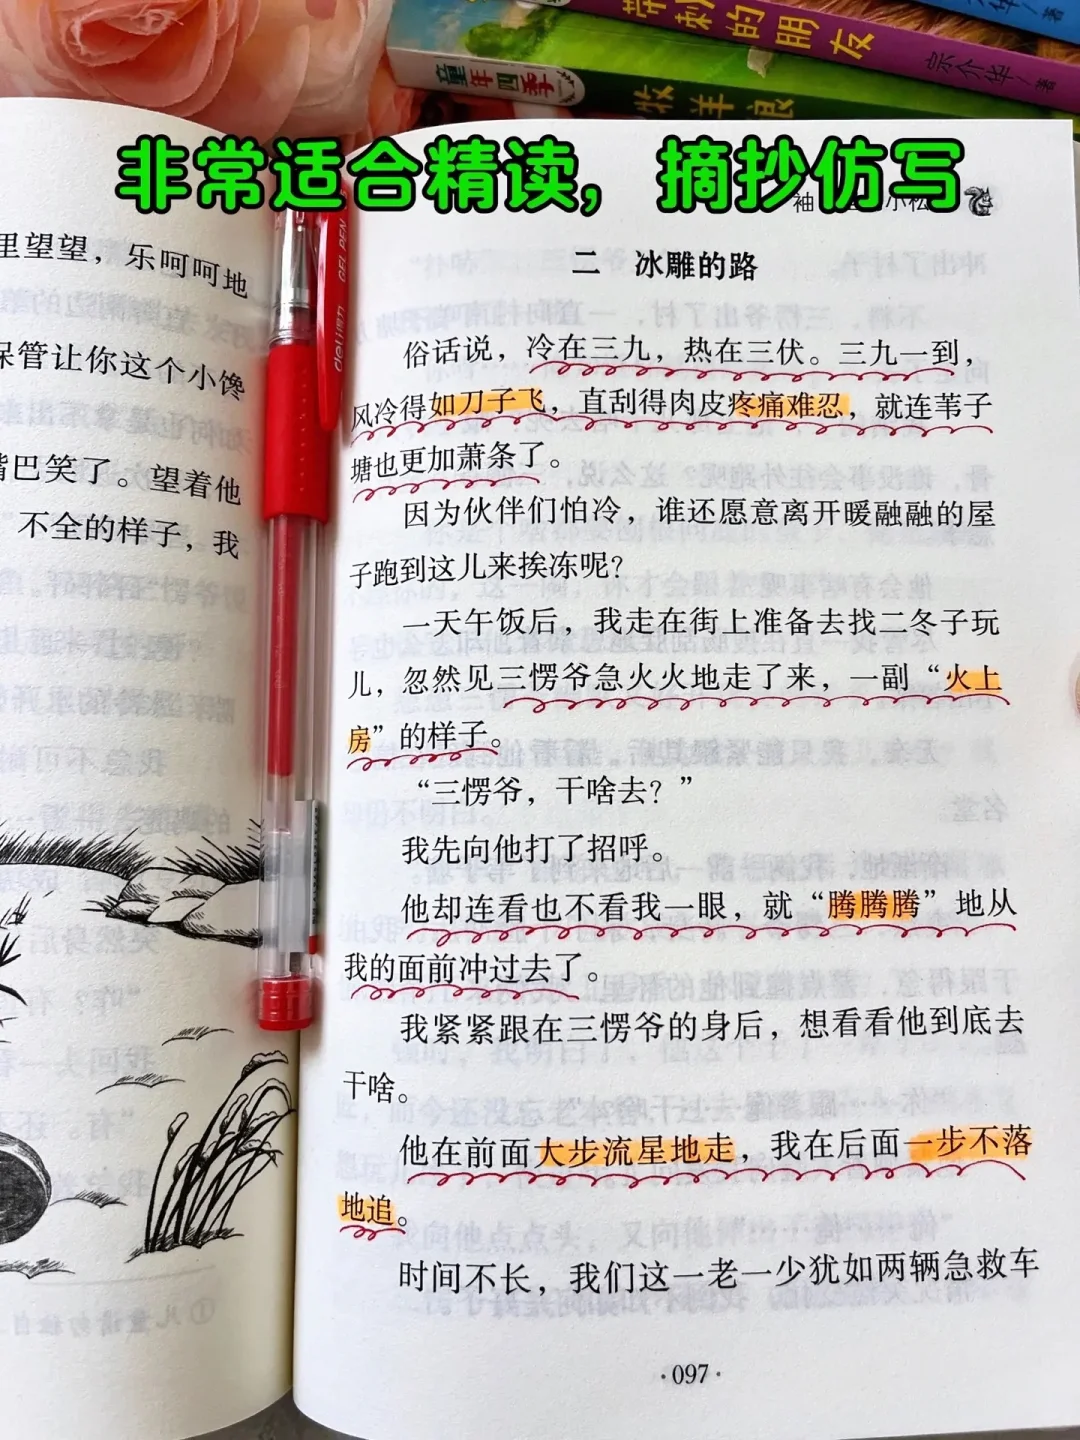 带刺的朋友
宗介华/著
童年四季
牧羊狼
非常适合精读，摘抄仿写
里望望，乐呵呵地
保管让你这个小馋
嘴巴笑了。望着他
不全的样子，我
deli得力
GEL PEN
二 冰雕的路
俗话说，冷在三九，热在三伏。三九一到，
风冷得如刀子飞，直刮得肉皮疼痛难忍，就连苇子
塘也更加萧条了。
因为伙伴们怕冷，谁还愿意离开暖融融的屋
子跑到这儿来挨冻呢？
一天午饭后，我走在街上准备去找二冬子玩
儿，忽然见三愣爷急火火地走了来，一副“火上
房”的样子。
“三愣爷，干啥去？”
我先向他打了招呼。
他却连看也不看我一眼，就“腾腾腾”地从
我的面前冲过去了。
我紧紧跟在三愣爷的身后，想看看他到底去
干啥。
他在前面大步流星地走，我在后面一步不落
地追。
时间不长，我们这一老一少犹如两辆急救车
·097·